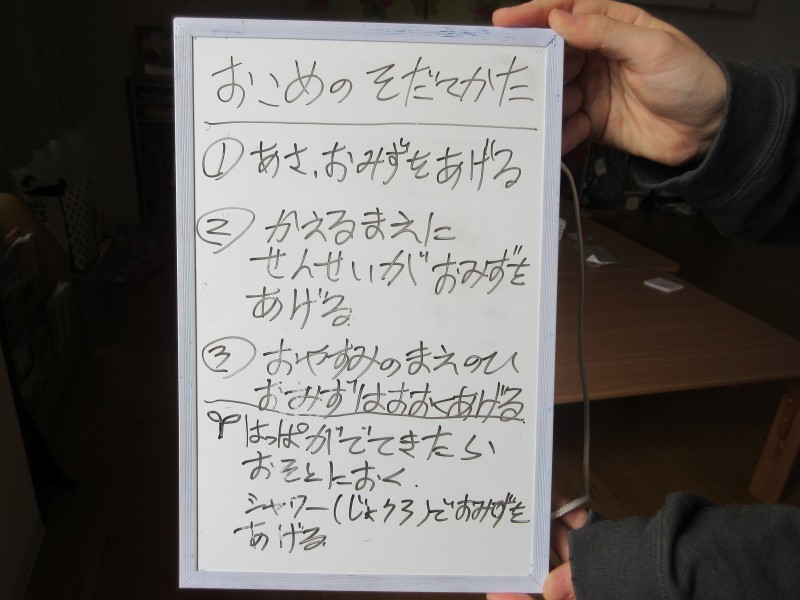 おこめのそだてかた
① あさ、おみずをあげる
② かえるまえに
せんせいが おみずを
あげる。
③ おやすみのまえのひ
おみずはおおくあげる
はっぱがでてきたら
おそとにおく.
シャワー(じょうろ)でおみずを
あげる。